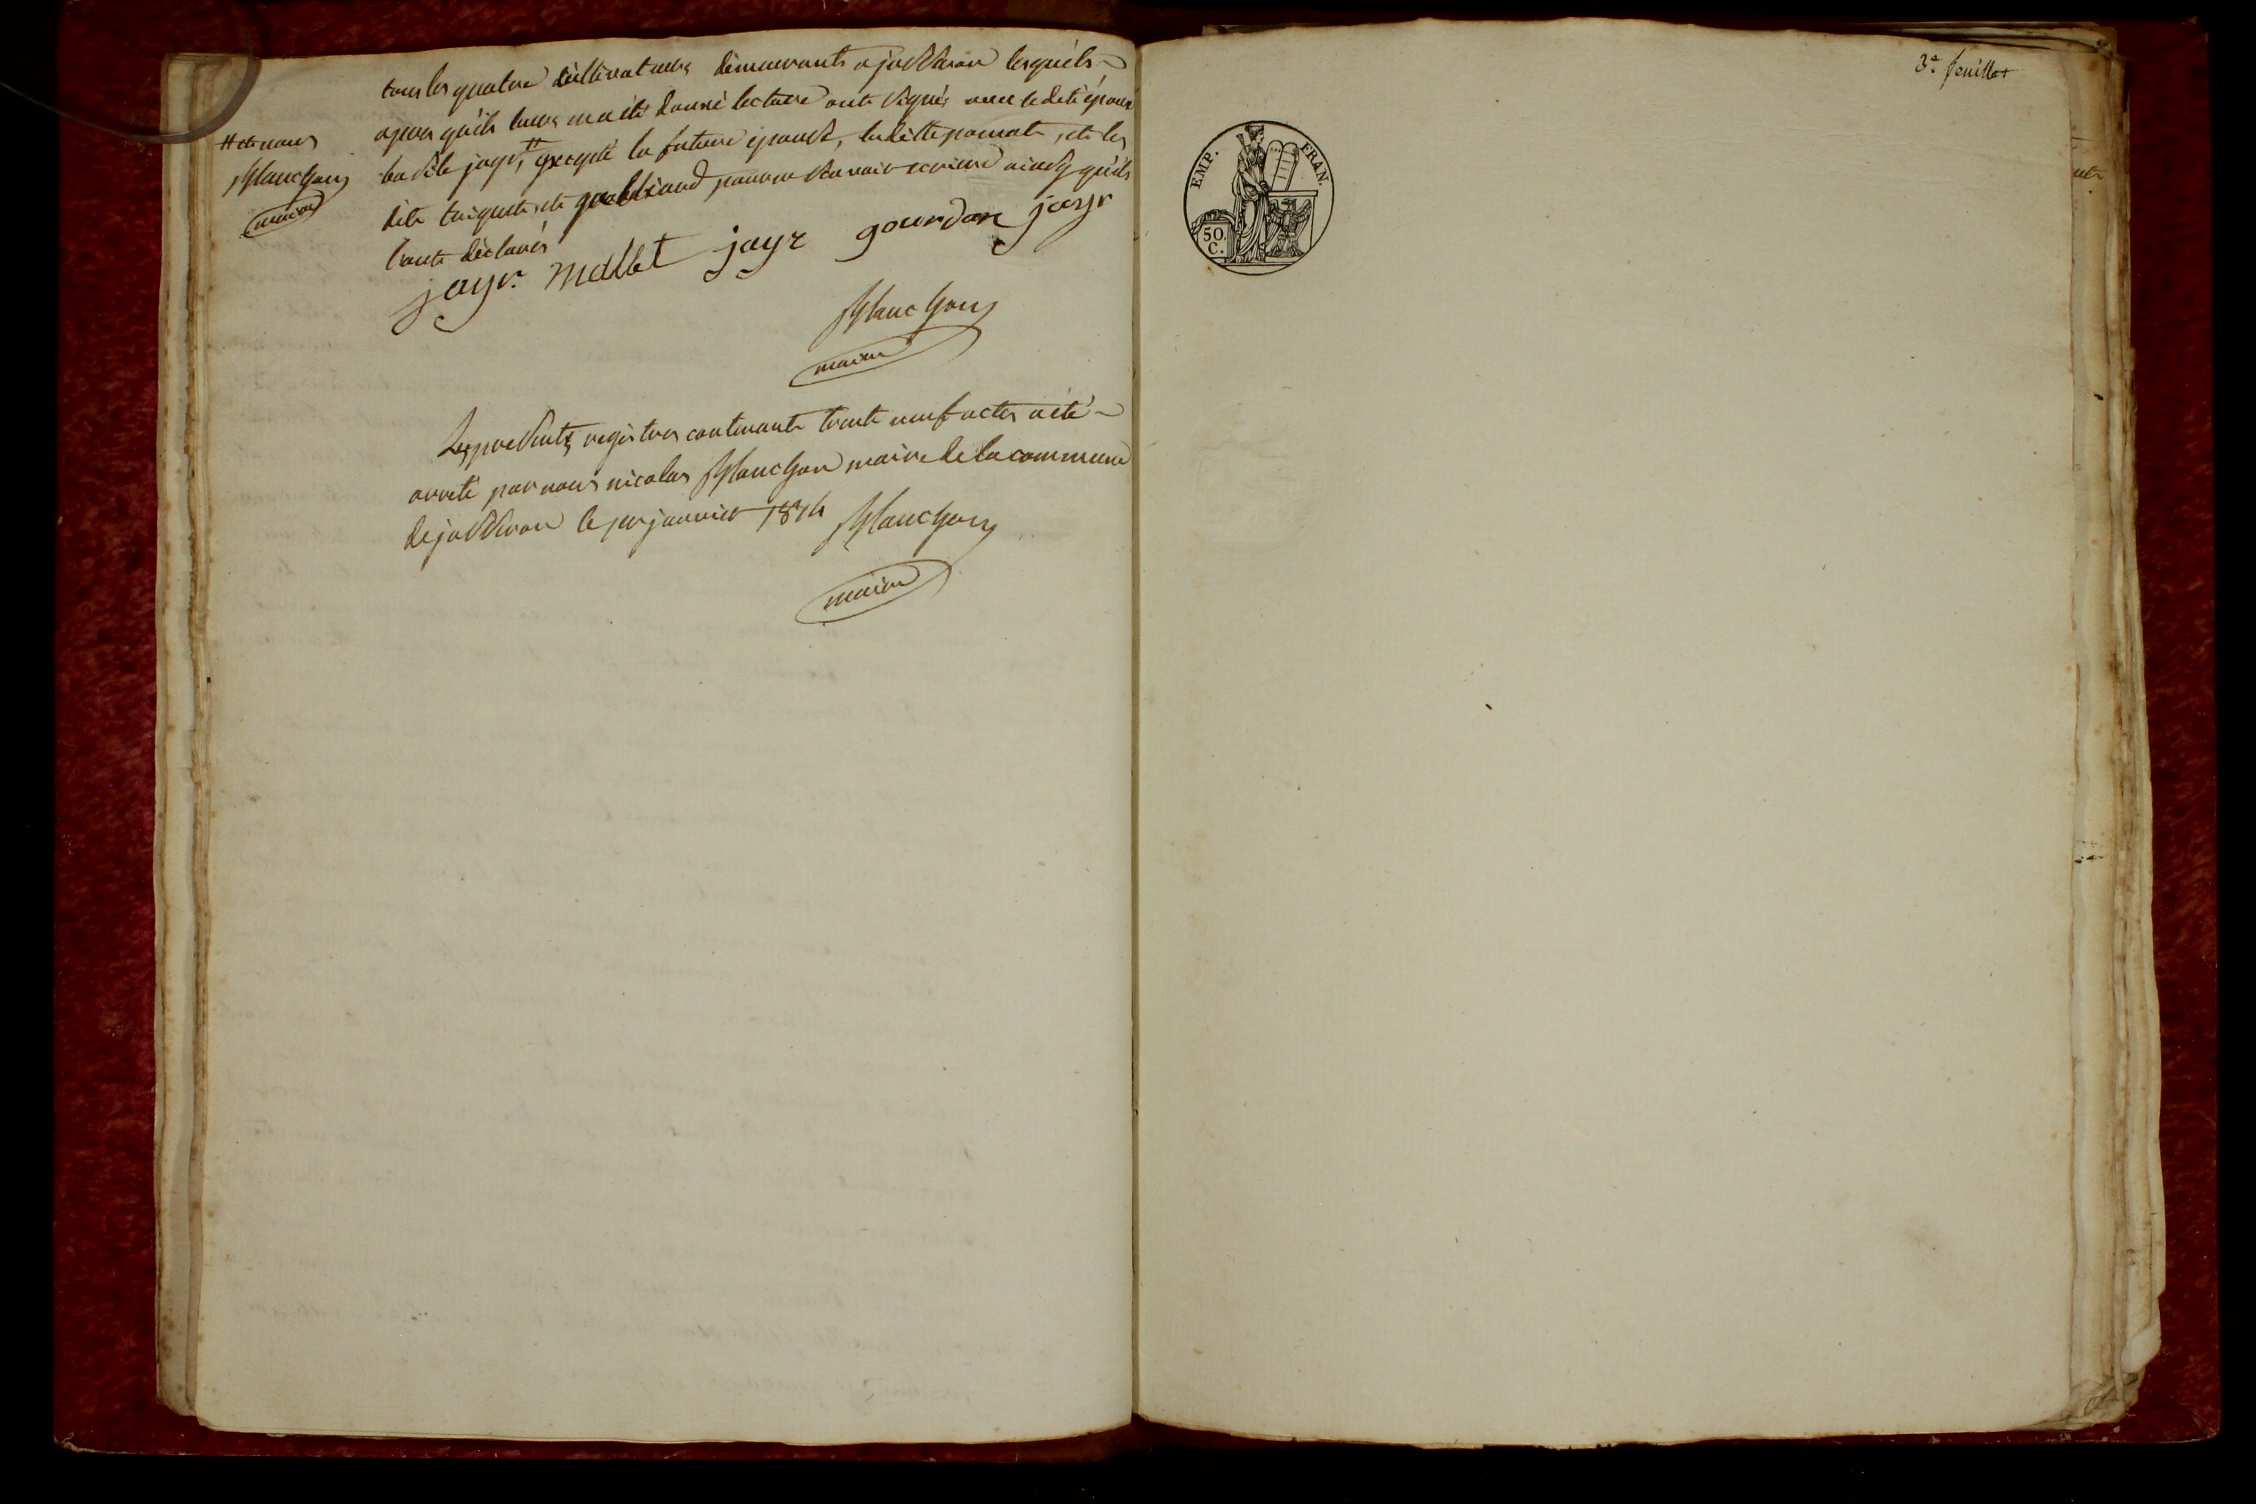 tous les quatre cultivateurs démeurants a josseron lesquéls
apres qu'ils leurs en a été donné lecture onte signés avec le dite époux
basile jayr, # excepté la future épouse, la ditte et les
dite et pour ne savoir ecrire ainsy qu'ils
l'onte déclarés
# et nous
planchon
maire
jayr. mallet jayr gourdan jayr
planchon
maire
Les presents registres contenants trente neuf actes a été
arreté par nous nicolas planchon maire de la commune
de josseron le 1er janvier 1814 planchon
maire
3e. feuillet
EMP. FRAN.
50.
C.